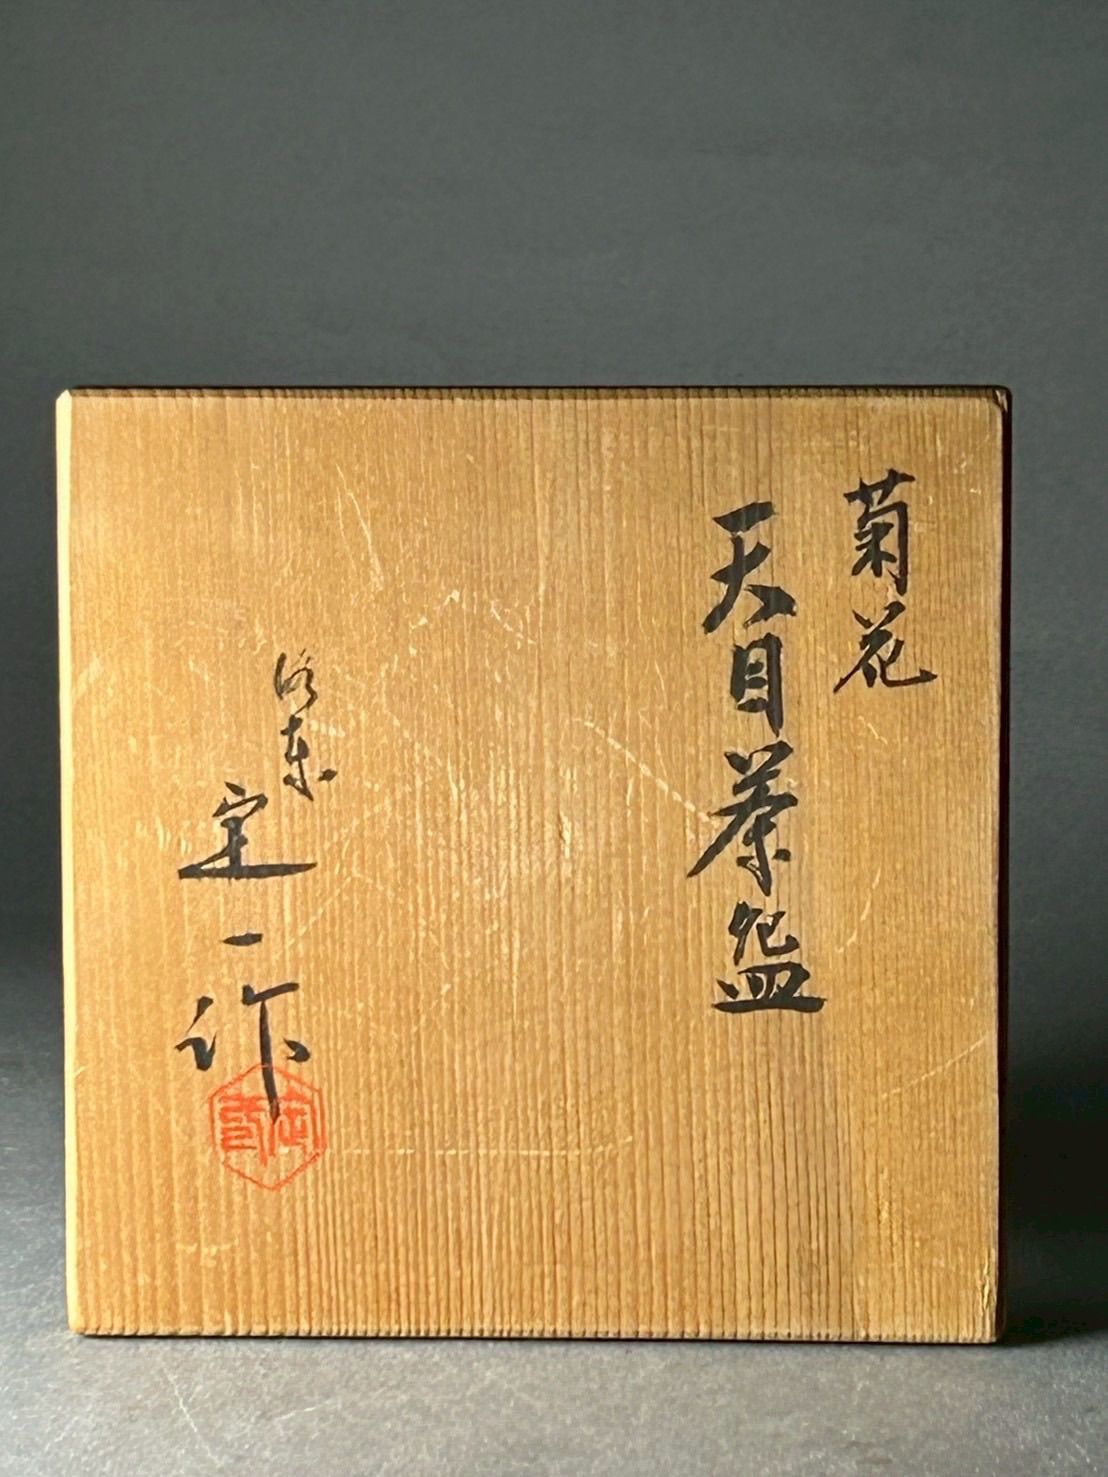 菊花
天目茶盌
洛東
定一作